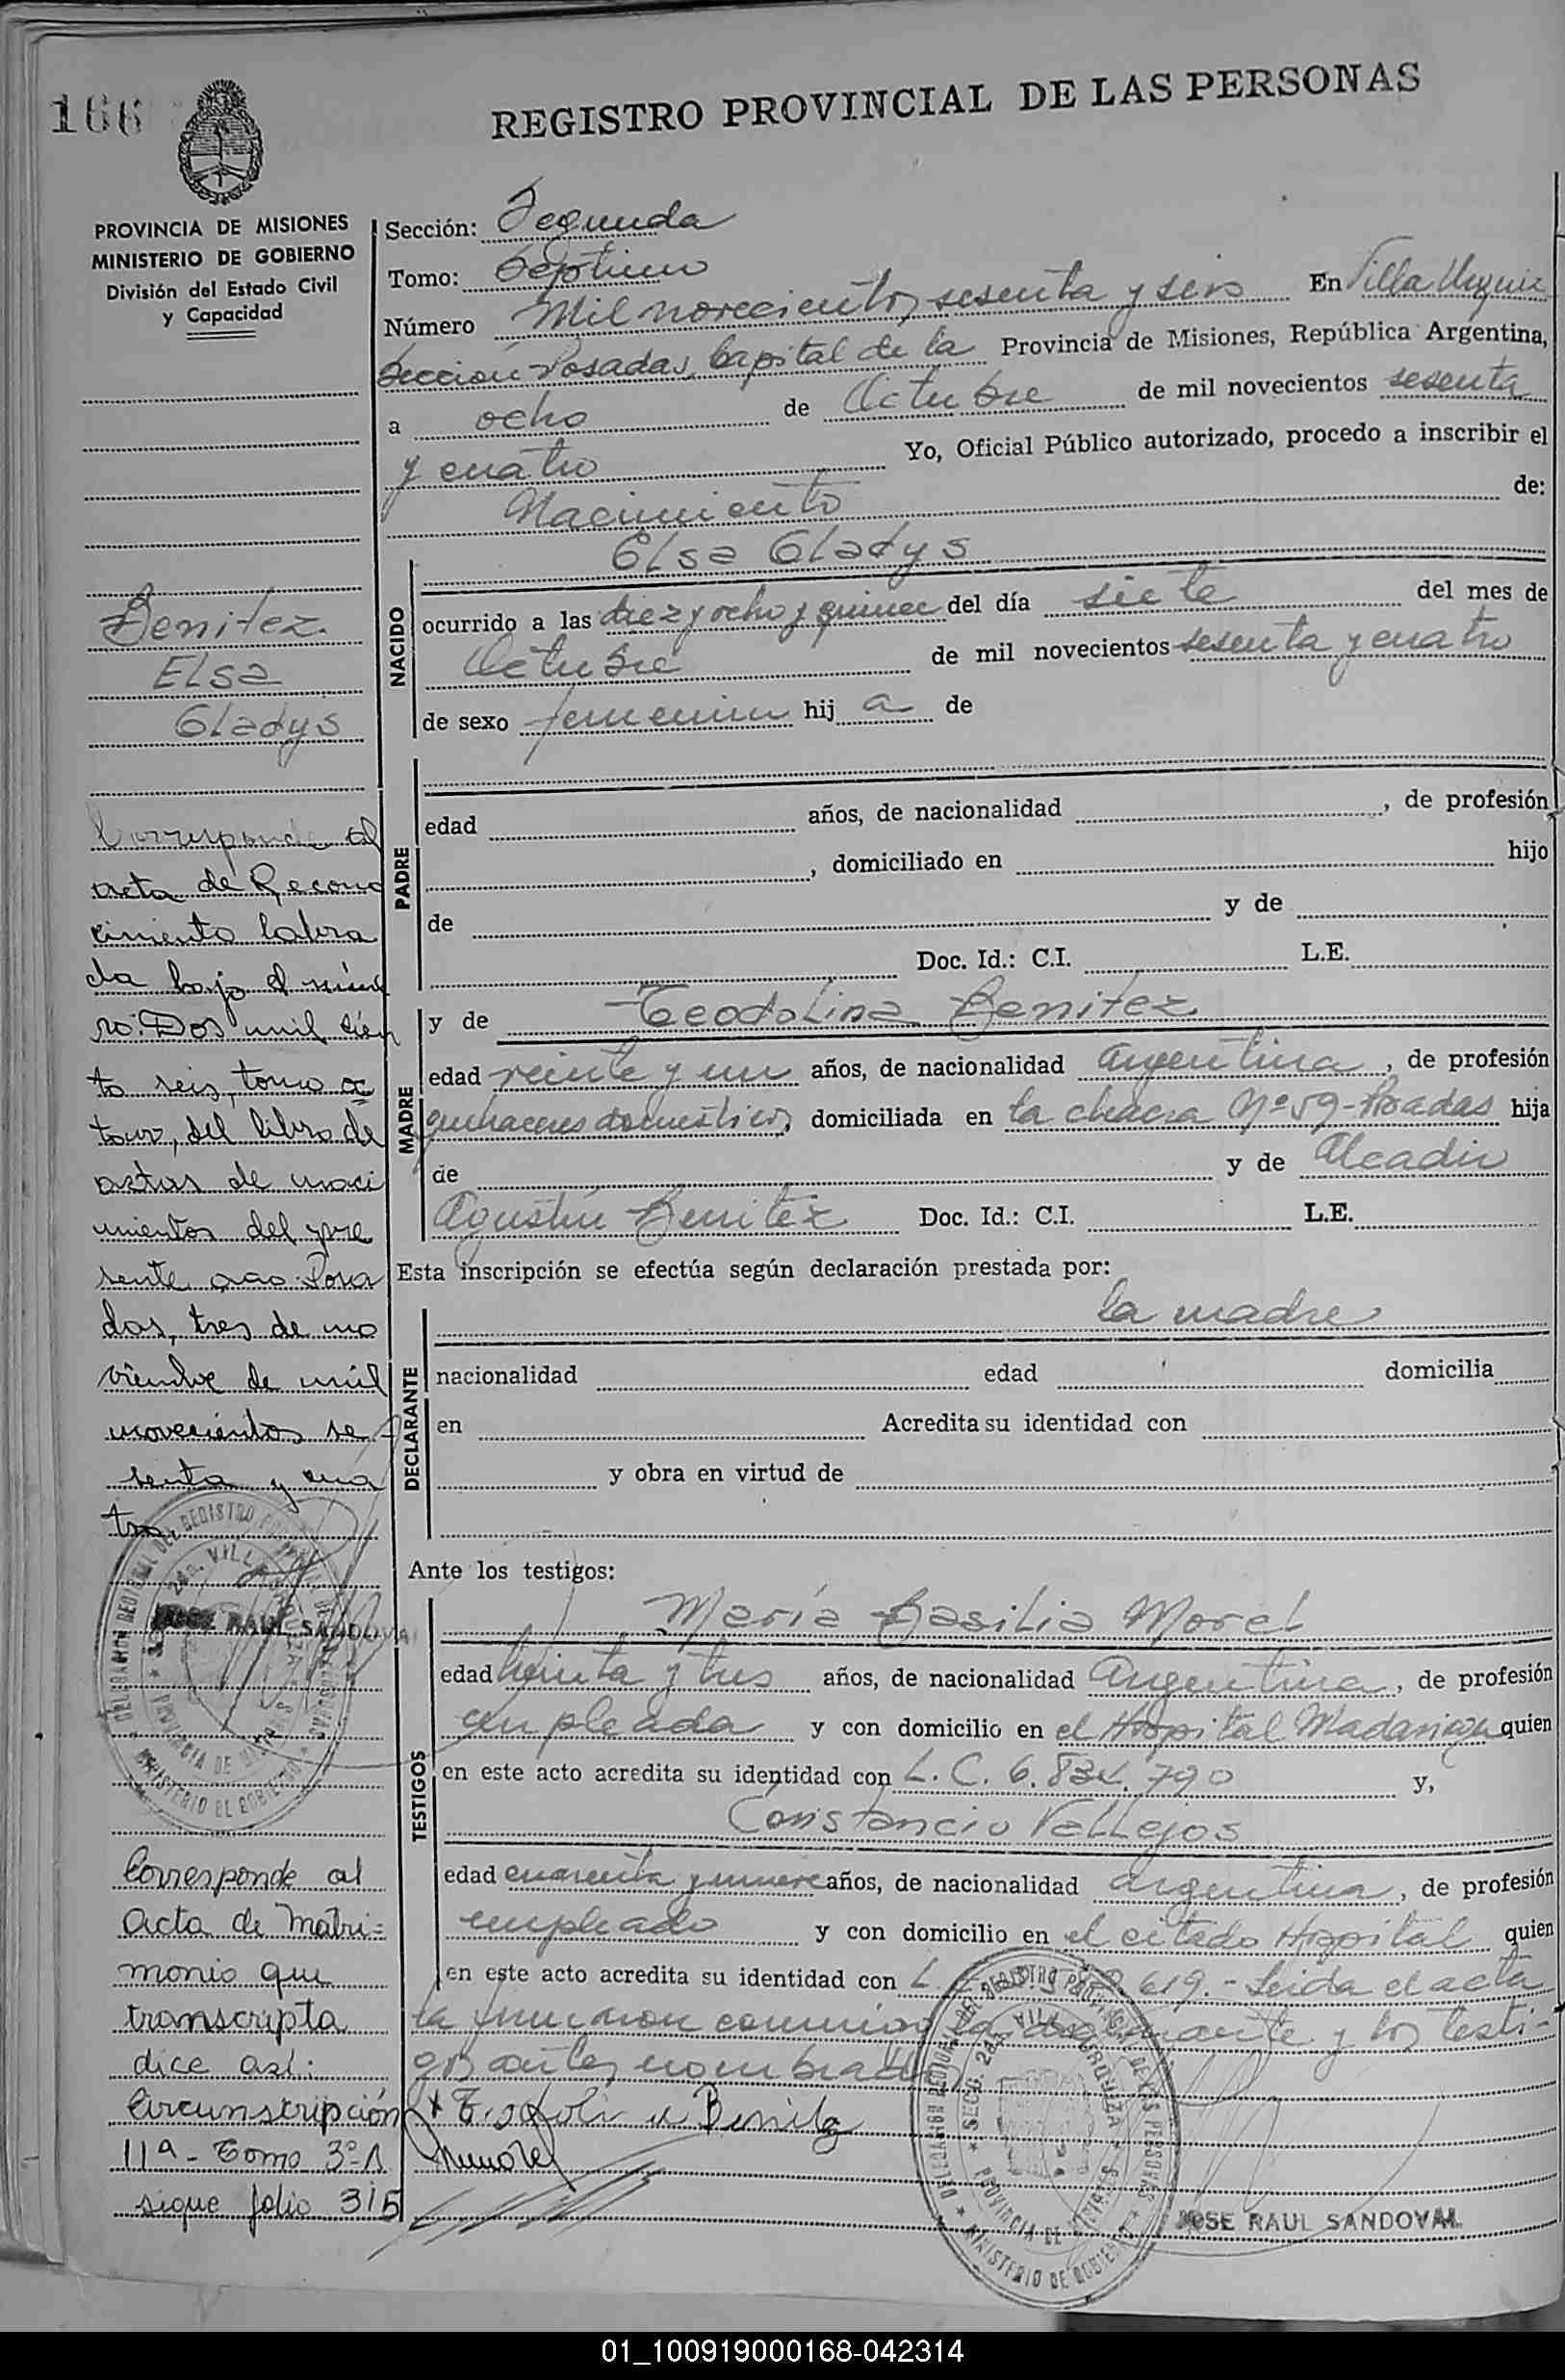 166
REGISTRO PROVINCIAL DE LAS PERSONAS
PROVINCIA DE MISIONES
MINISTERIO DE GOBIERNO
División del Estado Civil
y Capacidad
Benitez
Elsa
Gladys
Corresponde al
acta de Recono
cimiento labra
da bajo el núme
ro: Dos mil cien
to seis, tomo oc
tavo, del libro de
actas de naci
mientos del pre
sente año. Posa
das, tres de no
viembre de mil
novecientos se
senta y cua
tro.
JOSE RAUL SANDOVAL
Corresponde al
Acta de Matri-
monio que
transcripta
dice así:
Circunscripción
11ª - Tomo 3º-A
sigue folio 315
Sección: Segunda
Tomo: Séptimo
Número Mil novecientos sesenta y seis En Villa Urquiza
Sección Posadas, Capital de la Provincia de Misiones, República Argentina,
a ocho de Octubre de mil novecientos sesenta
y cuatro Yo, Oficial Público autorizado, procedo a inscribir el
Nacimiento de:
NACIDO
Elsa Gladys
ocurrido a las diez y ocho y quince del día siete del mes de
Octubre de mil novecientos sesenta y cuatro
de sexo femenino hij a de
PADRE
edad años, de nacionalidad , de profesión
, domiciliado en hijo
de y de
Doc. Id.: C.I. L.E.
MADRE
y de Teodolina Benitez
edad veinte y un años, de nacionalidad argentina, de profesión
quehaceres domésticos, domiciliada en la chacra Nº 59-Posadas hija
de y de Alcadio
Agustín Benitez Doc. Id.: C.I. L.E.
Esta inscripción se efectúa según declaración prestada por:
DECLARANTE
la madre
nacionalidad edad domicilia
en Acredita su identidad con
y obra en virtud de
Ante los testigos:
TESTIGOS
María Basilia Morel
edad treinta y tres años, de nacionalidad Argentina, de profesión
empleada y con domicilio en el Hospital Madariaga quien
en este acto acredita su identidad con L. C. 6.834.790 y,
Constancio Vallejos
edad cuarenta y nueve años, de nacionalidad argentina, de profesión
empleado y con domicilio en el citado Hospital quien
en este acto acredita su identidad con L. 619.- Leida el acta
la firman conmigo la declarante y los testi-
gos antes nombrados
Benitez
JOSE RAUL SANDOVAL
DELEGACION REGIONAL DEL REGISTRO PROVINCIAL DE LAS PERSONAS
SECC. 2da. VILLA URQUIZA
PROVINCIA DE MISIONES
MINISTERIO DE GOBIERNO
01_100919000168-042314